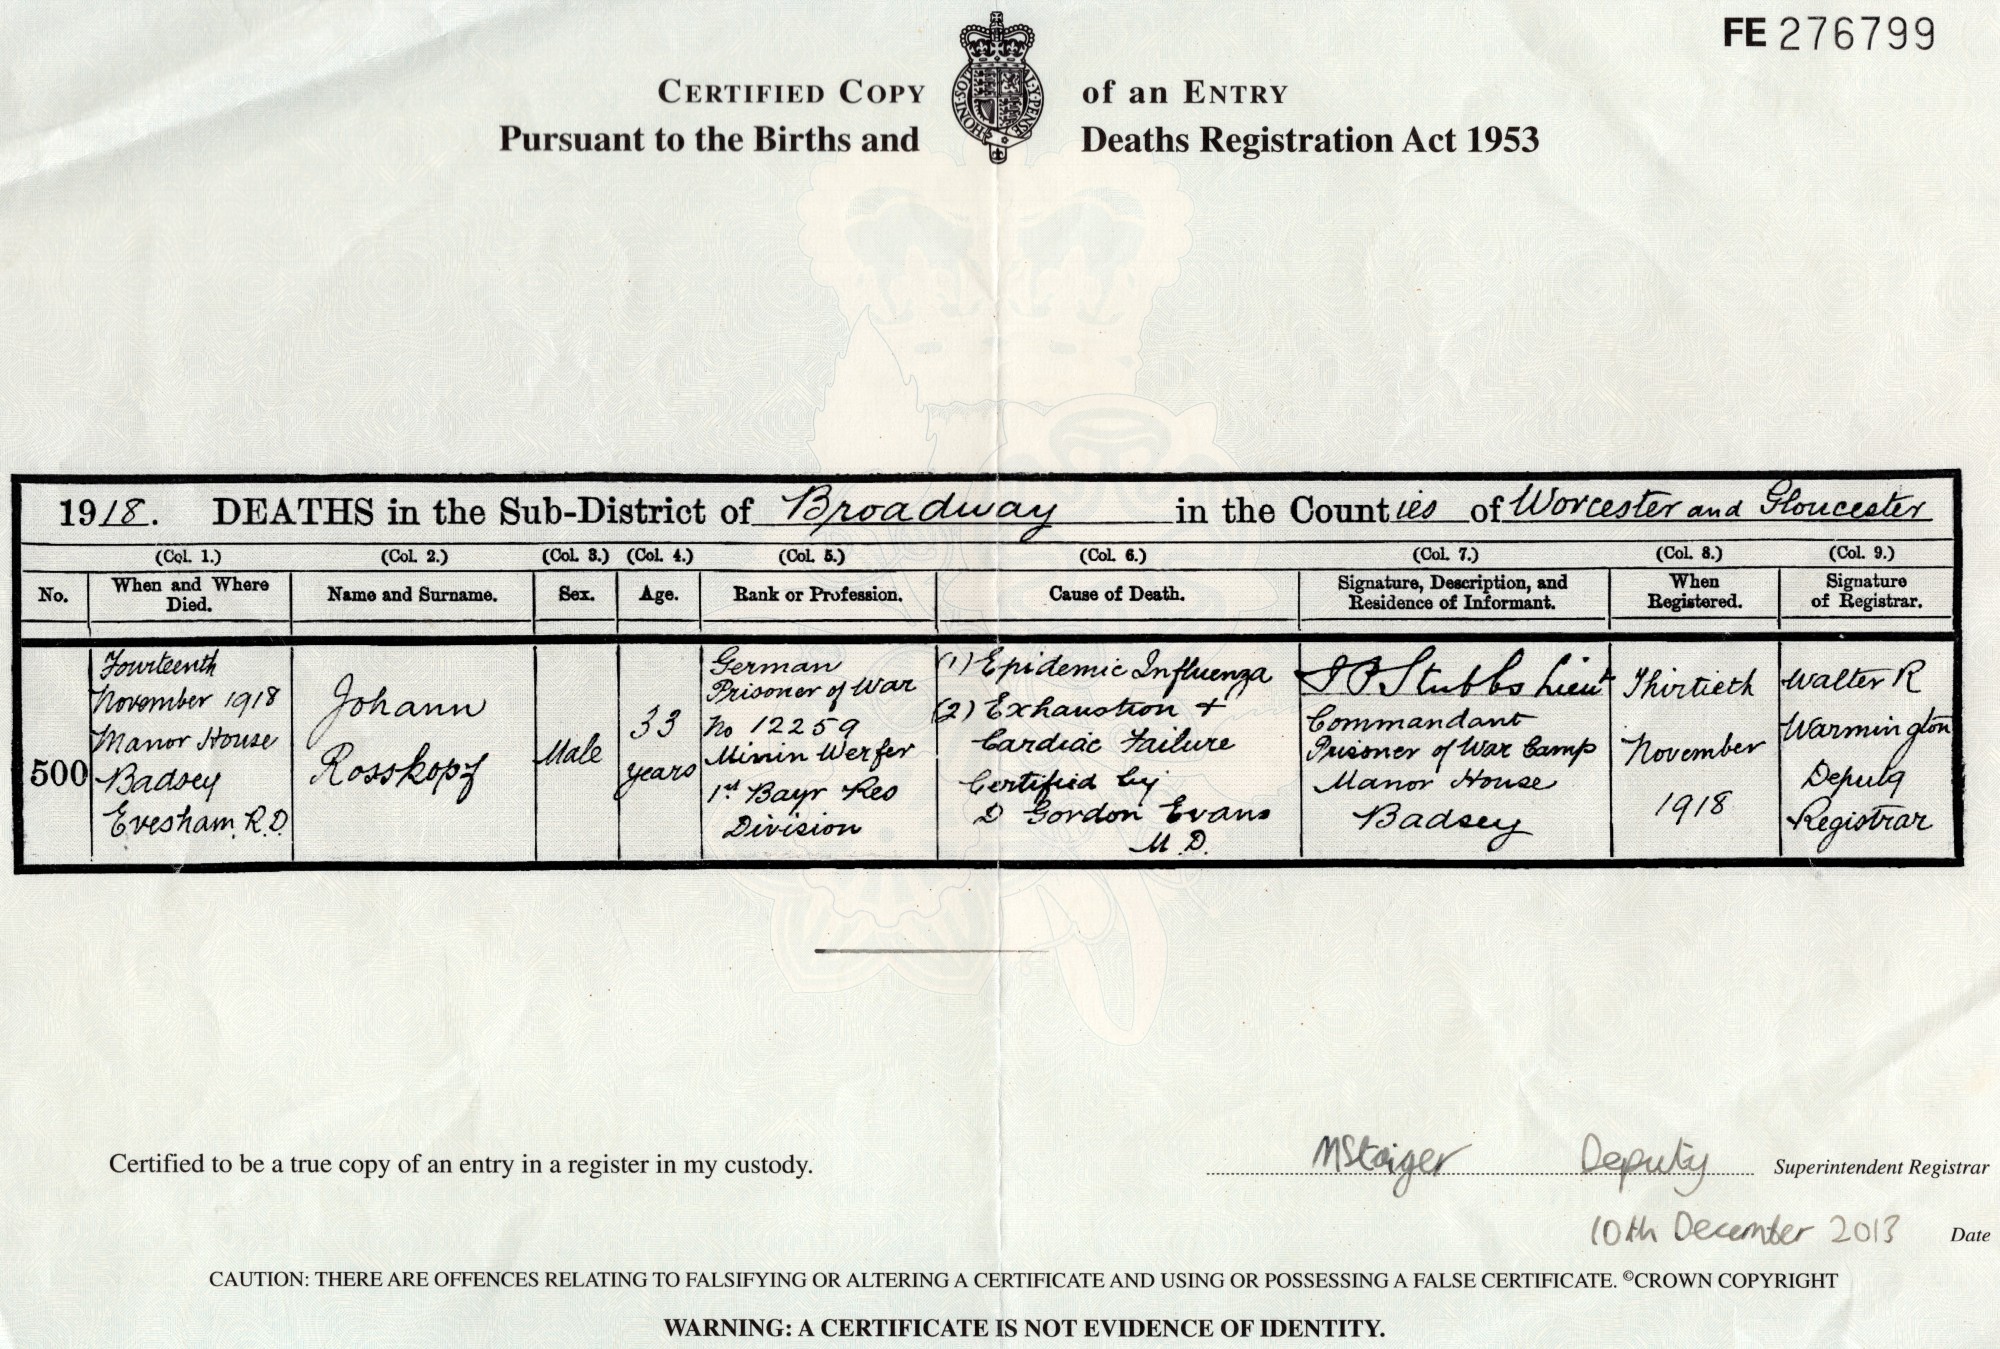 FE 276799
CERTIFIED COPY of an ENTRY
Pursuant to the Births and Deaths Registration Act 1953
HONI·SOIT
Y·PENSE
1918. DEATHS in the Sub-District of Broadway in the Counties of Worcester and Gloucester
(Col. 1.) (Col. 2.) (Col. 3.) (Col. 4.) (Col. 5.) (Col. 6.) (Col. 7.) (Col. 8.) (Col. 9.)
No.
When and Where
Died.
Name and Surname.
Sex.
Age.
Rank or Profession.
Cause of Death.
Signature, Description, and
Residence of Informant.
When
Registered.
Signature
of Registrar.
500
Fourteenth
November 1918
Manor House
Badsey
Evesham R.D.
Johann
Rosskopf
Male
33
years
German
Prisoner of War
No 12259
Minin Werfer
1st Bayr Res
Division
(1) Epidemic Influenza
(2) Exhaustion +
Cardiac Failure
Certified by
D Gordon Evans
M.D.
Stubbs Lieut
Commandant
Prisoner of War Camp
Manor House
Badsey
Thirtieth
November
1918
Walter R
Warmington
Deputy
Registrar
Certified to be a true copy of an entry in a register in my custody.
Deputy Superintendent Registrar
10th December 2013 Date
CAUTION: THERE ARE OFFENCES RELATING TO FALSIFYING OR ALTERING A CERTIFICATE AND USING OR POSSESSING A FALSE CERTIFICATE. ©CROWN COPYRIGHT
WARNING: A CERTIFICATE IS NOT EVIDENCE OF IDENTITY.